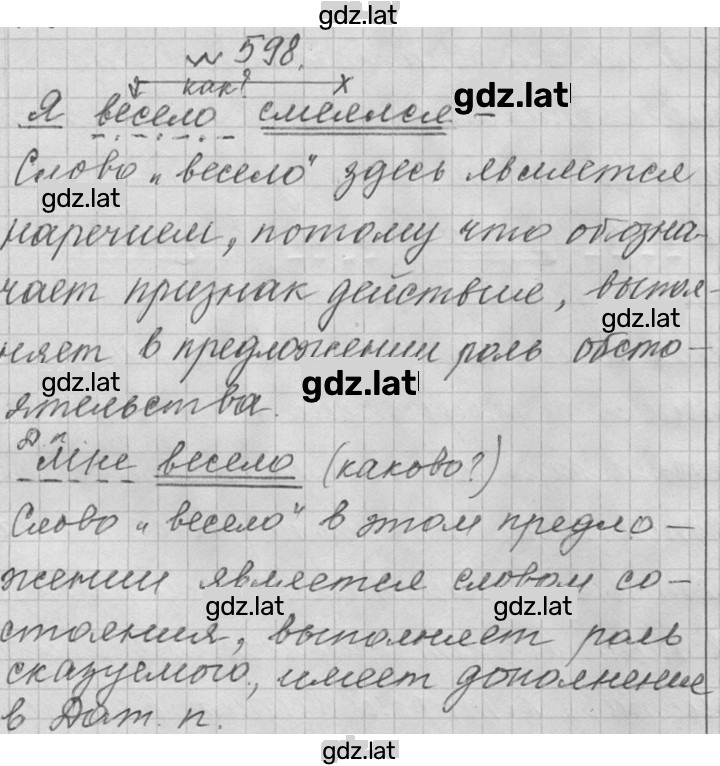 gdz.lat
№ 598.
как? х
Я весело смеялся – gdz.lat
Слово „весело" здесь является
gdz.lat
наречием, потому что обозна-
чает признак действие, выпол-
gdz.lat
няет в предложении роль обсто-
gdz.lat gdz.lat
ятельства.
Д.п.
Мне весело (каково?)
Слово „весело" в этом предло-
жении является словом со-
gdz.lat gdz.lat
стояния, выполняет роль
сказуемого, имеет дополнение
в Дат. п.
gdz.lat